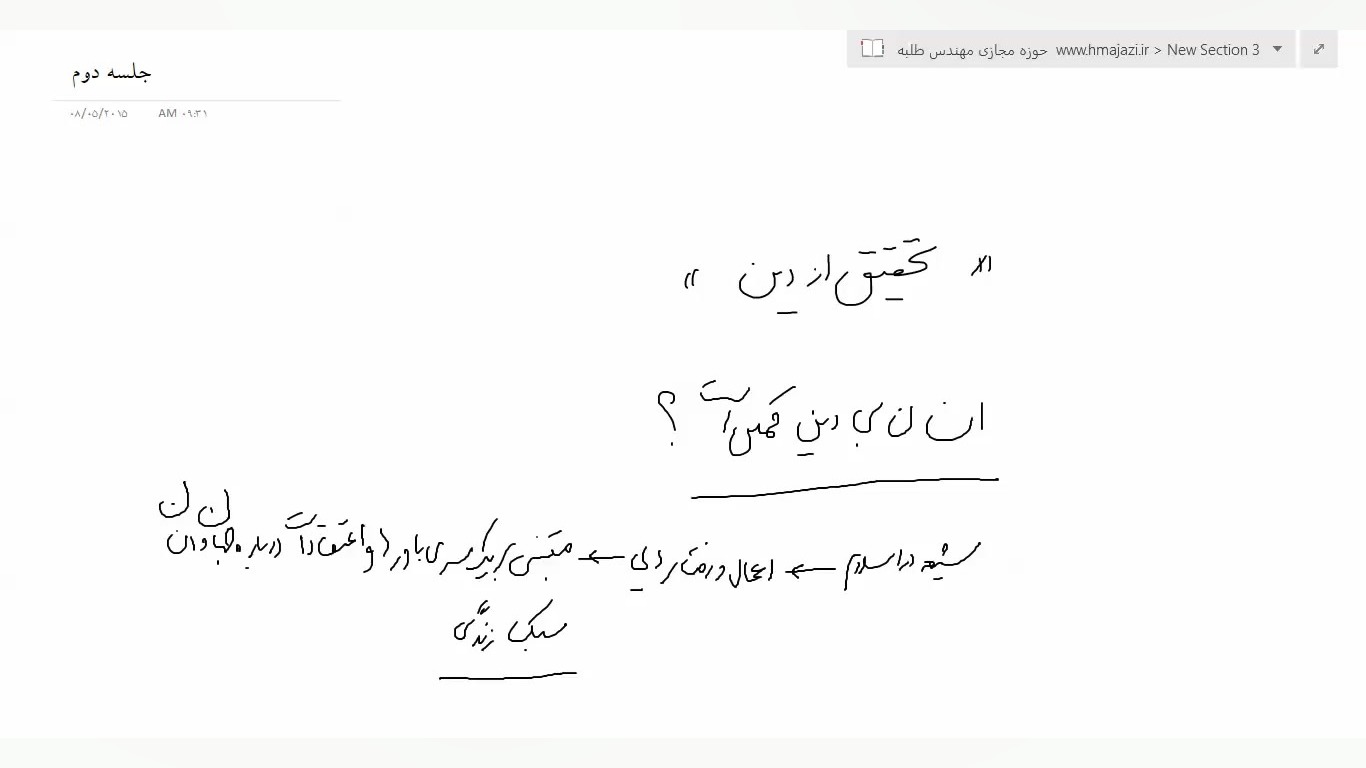 حوزه مجازی مهندس طلبه www.hmajazi.ir > New Section 3
جلسه دوم
۰۸/۰۵/۲۰۱۵ ۰۹:۳۱ AM
« تحقیق از دین »
انسان بی دین ممکن است ؟
شیعه در اسلام ← اعمال و رفتار دینی ← مبتنی بر یکسری باورها و اعتقادات درباره جهان و انسان
سبک زندگی